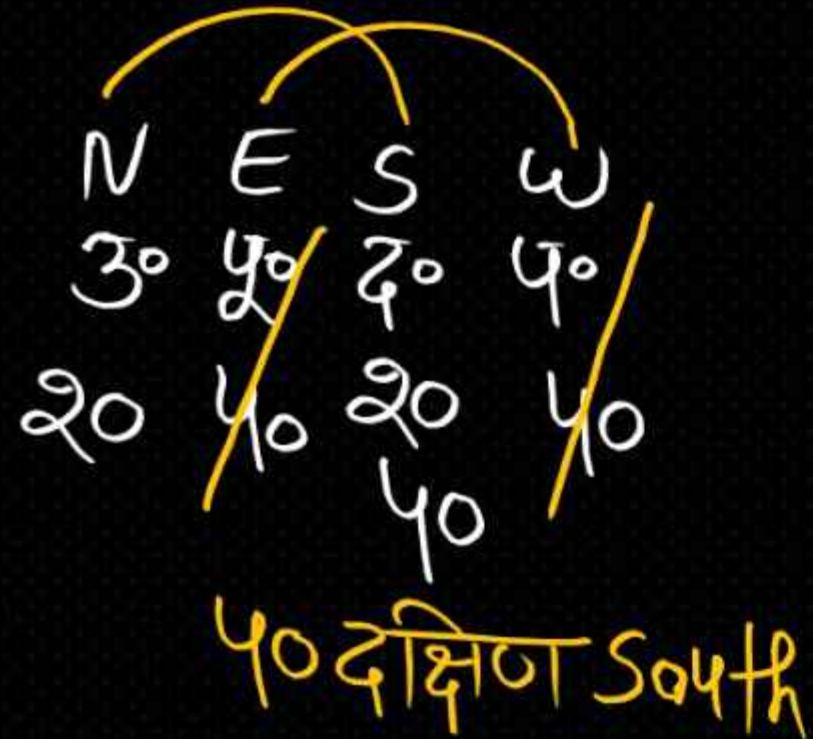 N E S W
उ० पू० द० प०
२० ५० २० ५०
५०
५० दक्षिण South